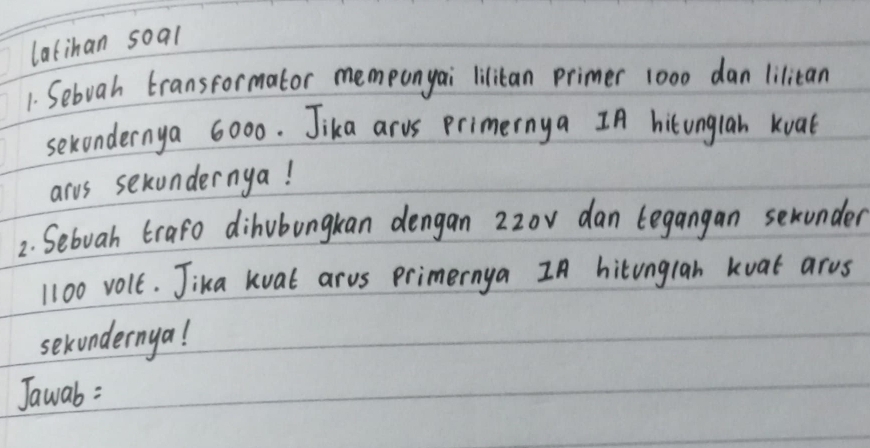 latihan soal
1. Sebuah transformator mempunyai lilitan primer 1000 dan lilitan
sekundernya 6000. Jika arus primernya 1A hitunglah kuat
arus sekundernya!
2. Sebuah trafo dihubungkan dengan 220V dan tegangan sekunder
1100 volt. Jika kuat arus primernya 1A hitunglah kuat arus
sekundernya!
Jawab =